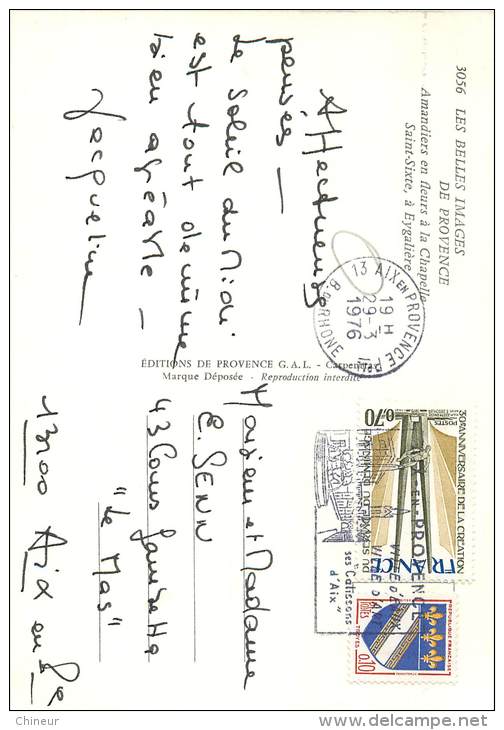 3056 LES BELLES IMAGES
DE PROVENCE
Amandiers en fleurs à la Chapelle
Saint-Sixte, à Eygalières
Affectueuses
pensées —
Le Soleil du Midi
est tout de même
bien agréable —
Jacqueline
13 AIX EN PROVENCE Ppal
19 H
29-3
1976
B. DU RHONE
ÉDITIONS DE PROVENCE G.A.L. - Carpentras
Marque Déposée - Reproduction interdite
30e ANNIVERSAIRE DE LA CREATION
DU SERVICE DU DEMINAGE
POSTES
0,70
FRANCE
AIX-EN-PROVENCE
VILLE D'EAUX
VILLE D'ART
ses Calissons
d'Aix
REPUBLIQUE FRANCAISE
POSTES
0,10
TROYES
Monsieur et Madame
E. SENN
43 Cours Gambetta
"Le Mas"
13100 Aix en Pce
Chineur
www.delcampe.net